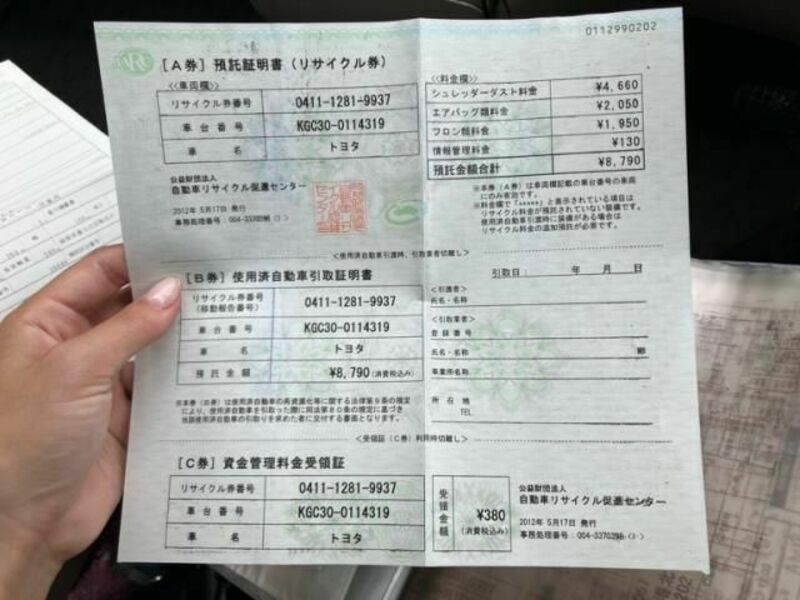 0112990202
[A券] 預託証明書(リサイクル券)
<<車両欄>>
リサイクル券番号 0411-1281-9937
車台番号 KGC30-0114319
車名 トヨタ
公益財団法人
自動車リサイクル促進センター
2012年 5月17日 発行
<<料金欄>>
シュレッダーダスト料金 ¥4,660
エアバッグ類料金 ¥2,050
フロン類料金 ¥1,950
情報管理料金 ¥130
預託金額合計 ¥8,790
※本券(A券)は車両欄記載の車台番号の車両
にのみ有効です。
※料金欄で「*****」と表示されている項目は
リサイクル料金が預託されていない装備です。
使用済自動車引渡時に装備がある場合は
リサイクル料金の追加預託が必要です。
<使用済自動車引渡時、引取業者切離し>
[B券] 使用済自動車引取証明書
リサイクル券番号
(移動報告番号) 0411-1281-9937
車台番号 KGC30-0114319
車名 トヨタ
預託金額 ¥8,790(消費税込み)
※本券(B券)は使用済自動車の再資源化等に関する法律第9条の規定
により、使用済自動車を引取った際に同法第80条の規定に基づき
当該使用済自動車の引取りを求めた者に交付する書面となります。
引取日: 年 月 日
<引渡者>
氏名・名称
<引取業者>
登録番号
氏名・名称
事業所名称
所在地
TEL
<受領証(C券)利用時切離し>
[C券] 資金管理料金受領証
リサイクル券番号 0411-1281-9937
車台番号 KGC30-0114319
車名 トヨタ
受領金額 ¥380
(消費税込み)
公益財団法人
自動車リサイクル促進センター
2012年 5月17日 発行